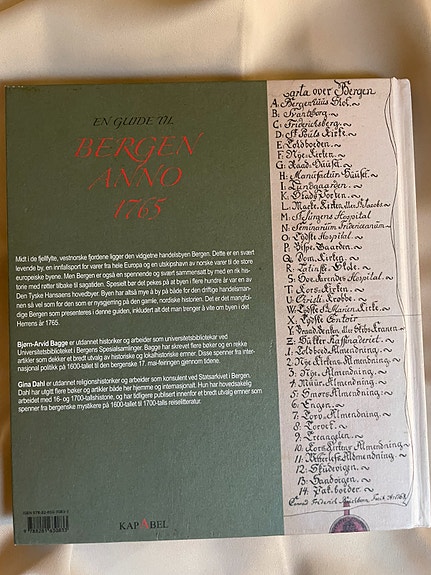 EN GUIDE TIL
BERGEN
ANNO
1765
Midt i de fjellfylte, vestnorske fjordene ligger den vidgjetne handelsbyen Bergen. Dette er en svært
levende by, en innfallsport for varer fra hele Europa og en utskipshavn av norske varer til de store
europeiske byene. Men Bergen er også en spennende og svært sammensatt by med en rik his-
torie med røtter tilbake til sagatiden. Spesielt bør det pekes på at byen i flere hundre år var en av
Den Tyske Hansaens hovedbyer. Byen har altså mye å by på både for den driftige handelsman-
nen så vel som for den som er nysgjerrig på den gamle, nordiske historien. Det er det mangfol-
dige Bergen som presenteres i denne guiden, inkludert alt det man trenger å vite om byen i det
Herrens år 1765.
Bjørn-Arvid Bagge er utdannet historiker og arbeider som universitetsbibliotekar ved
Universitetsbiblioteket i Bergens Spesialsamlinger. Bagge har skrevet flere bøker og en rekke
artikler som dekker et bredt utvalg av historiske og lokalhistoriske emner. Disse spenner fra inter-
nasjonal politikk på 1600-tallet til den bergenske 17. mai-feiringen gjennom tidene.
Gina Dahl er utdannet religionshistoriker og arbeider som konsulent ved Statsarkivet i Bergen.
Dahl har utgitt flere bøker og artikler både her hjemme og internasjonalt. Hun har hovedsakelig
arbeidet med 16- og 1700-tallshistorie, og har tidligere publisert innenfor et bredt utvalg emner som
spenner fra bergenske mystikere på 1600-tallet til 1700-talls reiselitteratur.
KAPABEL
Carta over Bergen
A: Bergenhuus Slot.
B: Svartzborg.
C: Fridericksberg.
D: St Pouls Kirke
E: Toldboeden.
F: Nye-Kirken.
G: Raad-Huuset.
H: Manufactur Huuset.
I: Lungegaarden.
K: Stads Porten.
M: St Jürgens Hospital
N: Seminarium Fridericianum
O: Tydske Hospital.
P: Bispe-Gaarden.
Q: Dom-Kirken.
R: Latinske-Skole.
T: Kors-Kirken.
X: Tydske Contoir
1: Toldbod Almendning.
2: Nye Kirkens Almendning.
3: Nye Almendning.
4: Muur Almendning.
5: Smörs Almendning.
6: Engen.
7: Torv Almendning.
8: Torvet.
9: Treangelen.
10: Kors Kirkens Almendning
12: Skudevigen.
13: Sandvigen.